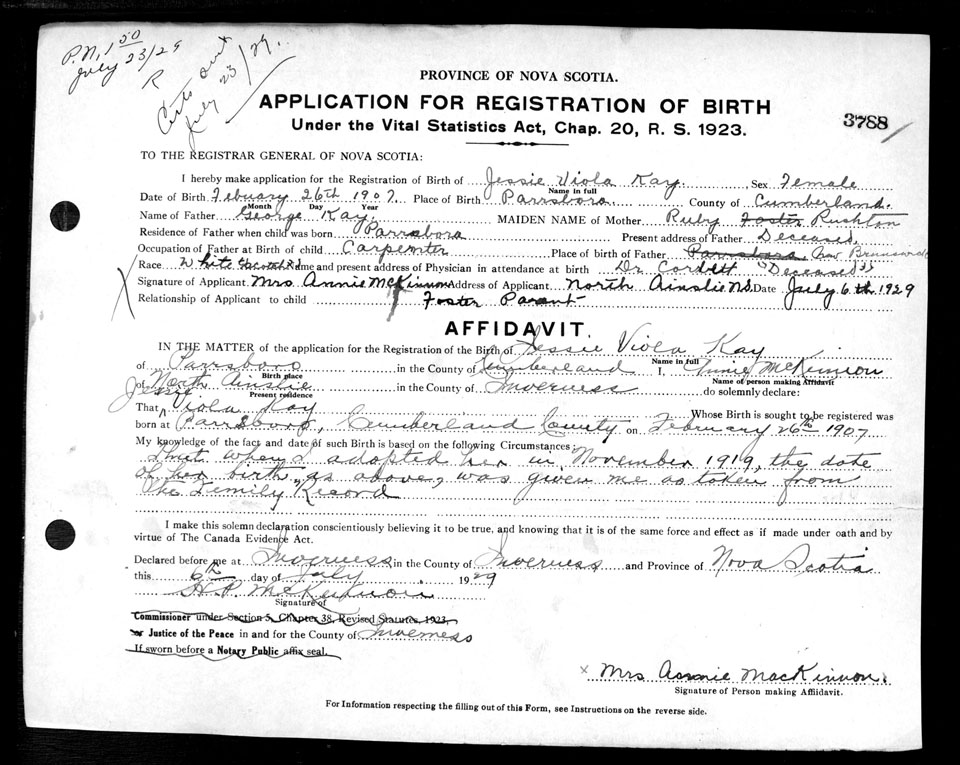 P.N. 1 50
July 23/29
R
Certs out
July 23/29.
PROVINCE OF NOVA SCOTIA.
APPLICATION FOR REGISTRATION OF BIRTH
Under the Vital Statistics Act, Chap. 20, R. S. 1923.
3788
TO THE REGISTRAR GENERAL OF NOVA SCOTIA:
I hereby make application for the Registration of Birth of Jessie Viola Kay Sex Female
Name in full
Date of Birth Febuary 26th 1907. Place of Birth Parrsboro County of Cumberland.
Month Day Year
Name of Father George Kay. MAIDEN NAME of Mother Ruby Foster Rushton
Residence of Father when child was born Parrsbora Present address of Father Deceased
Occupation of Father at Birth of child Carpenter Place of birth of Father Parrsboro New Brunswick
Race White Name and present address of Physician in attendance at birth Dr Corbett "Deceased"
Signature of Applicant Mrs Annie McKinnon Address of Applicant North Ainslie NS Date July 6th 1929
Relationship of Applicant to child Foster Parent
AFFIDAVIT.
IN THE MATTER of the application for the Registration of the Birth of Jessie Viola Kay
Name in full
of Parrsboro in the County of Cumberland I, Annie McKinnon
Birth place Name of person making Affidavit
of North Ainslie in the County of Inverness do solemnly declare:
Present residence
Jessie
That Viola Kay Whose Birth is sought to be registered was
born at Parrsboro, Cumberland County on February 26th 1907
My knowledge of the fact and date of such Birth is based on the following Circumstances:
That when I adopted her in November 1919, the date
of her birth, as above, was given me as taken from
the Family Record
I make this solemn declaration conscientiously believing it to be true, and knowing that it is of the same force and effect as if made under oath and by
virtue of The Canada Evidence Act.
Declared before me at Inverness in the County of Inverness and Province of Nova Scotia
this 6th day of July 1929
H. P. McKinnon
Signature of
Commissioner under Section 5, Chapter 38, Revised Statutes, 1923,
or Justice of the Peace in and for the County of Inverness
If sworn before a Notary Public affix seal.
x Mrs Annie MacKinnon.
Signature of Person making Affidavit.
For Information respecting the filling out of this Form, see Instructions on the reverse side.